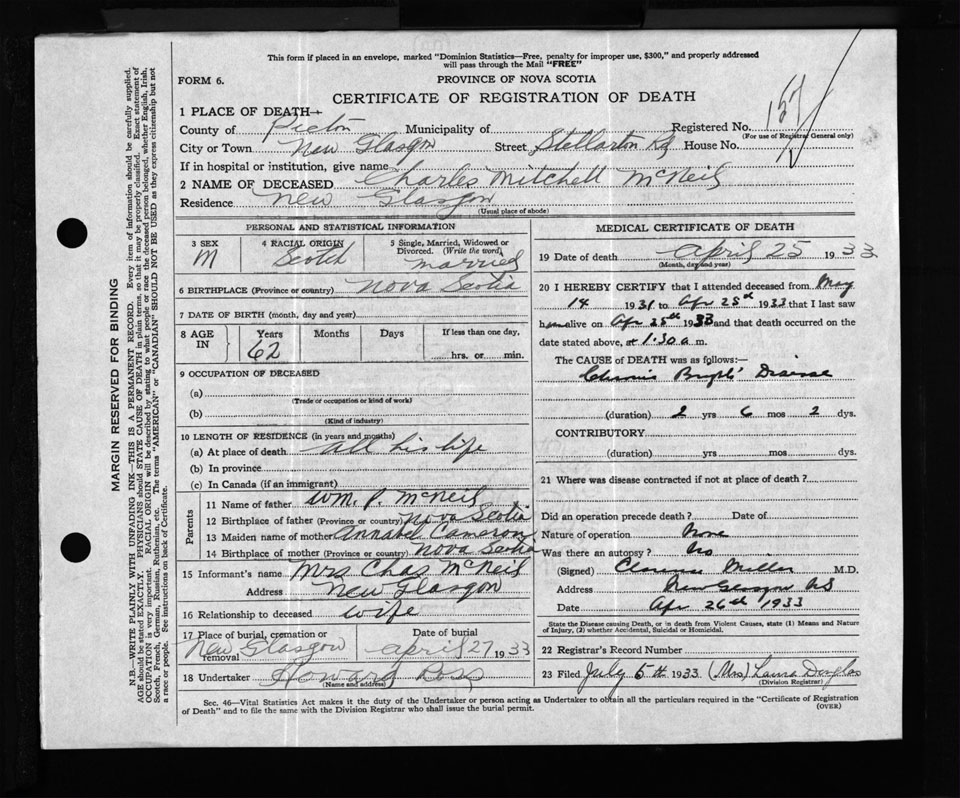 This form if placed in an envelope, marked "Dominion Statistics—Free, penalty for improper use, $300," and properly addressed
will pass through the Mail "FREE"
FORM 6.
PROVINCE OF NOVA SCOTIA
CERTIFICATE OF REGISTRATION OF DEATH
1 PLACE OF DEATH—
County of Pictou Municipality of Registered No. 157
(For use of Registrar General only)
City or Town New Glasgow Street Stellarton Rd House No.
If in hospital or institution, give name
2 NAME OF DECEASED Charles Mitchell McNeil
Residence New Glasgow
(Usual place of abode)
PERSONAL AND STATISTICAL INFORMATION
3 SEX M
4 RACIAL ORIGIN Scotch
5 Single, Married, Widowed or Divorced. (Write the word) married
6 BIRTHPLACE (Province or country) Nova Scotia
7 DATE OF BIRTH (month, day and year)
8 AGE IN Years 62 Months Days If less than one day, hrs. or min.
9 OCCUPATION OF DECEASED
(a)
(Trade or occupation or kind of work)
(b)
(Kind of industry)
10 LENGTH OF RESIDENCE (in years and months)
(a) At place of death all his life
(b) In province
(c) In Canada (if an immigrant)
Parents
11 Name of father Wm. P. McNeil
12 Birthplace of father (Province or country) Nova Scotia
13 Maiden name of mother Annabel Cameron
14 Birthplace of mother (Province or country) Nova Scotia
15 Informant's name Mrs Chas McNeil
Address New Glasgow
16 Relationship to deceased wife
17 Place of burial, cremation or removal New Glasgow
Date of burial april 27 1933
18 Undertaker Howard Ross
(Name and address)
MEDICAL CERTIFICATE OF DEATH
19 Date of death April 25 1933
(Month, day and year)
20 I HEREBY CERTIFY that I attended deceased from May
14 1931 to Apr 25th 1933 that I last saw
him alive on Apr 25th 1933 and that death occurred on the
date stated above, at 1.30 a.m.
The CAUSE of DEATH was as follows:—
Chronic Bright's Disease
(duration) 2 yrs 6 mos 2 dys.
CONTRIBUTORY
(duration) yrs mos dys.
21 Where was disease contracted if not at place of death?
Did an operation precede death? Date of
Nature of operation None
Was there an autopsy? No
(Signed) Clarence Miller M.D.
Address New Glasgow NS
Date Apr 26th 1933
State the Disease causing Death, or in death from Violent Causes, state (1) Means and Nature
of Injury, (2) whether Accidental, Suicidal or Homicidal.
22 Registrar's Record Number
23 Filed July 5th 1933 (Mrs) Laura Douglas
(Division Registrar)
Sec. 46—Vital Statistics Act makes it the duty of the Undertaker or person acting as Undertaker to obtain all the particulars required in the "Certificate of Registration
of Death" and to file the same with the Division Registrar who shall issue the burial permit.
(OVER)
MARGIN RESERVED FOR BINDING
N.B.—WRITE PLAINLY WITH UNFADING INK—THIS IS A PERMANENT RECORD. Every item of information should be carefully supplied.
AGE should be stated EXACTLY. PHYSICIANS should STATE CAUSE OF DEATH in plain terms, so that it may be properly classified. Exact statement of
OCCUPATION is very important. RACIAL ORIGIN will be described by stating to what people or race the deceased person belonged, whether English, Irish,
Scotch, French, German, Russian, Ruthenian, etc. The terms "AMERICAN" or "CANADIAN" SHOULD NOT BE USED as they express citizenship but not
a race or people. See instructions on back of Certificate.